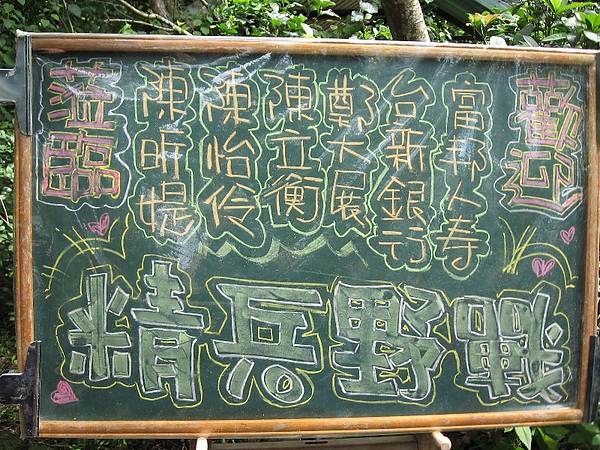 歡迎
富邦人寿
台新銀行
鄭大展
陳立衡
陳怡伶
陳昕媞
蒞臨
精兵野戰